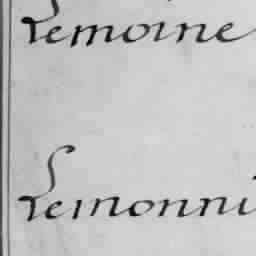 Lemoine
Lemonni